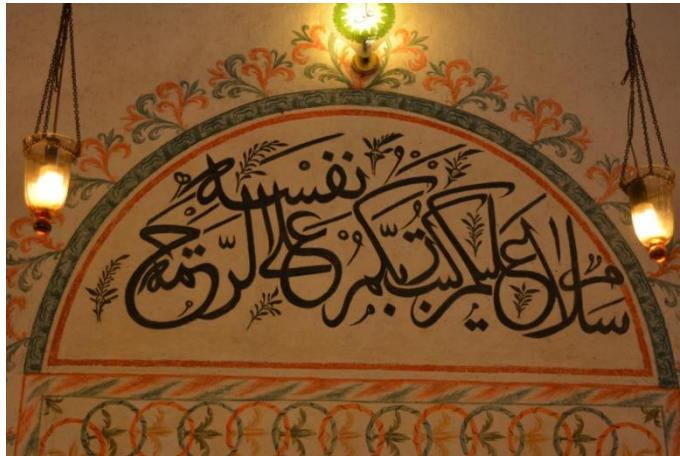 سلام عليكم كتب ربكم على نفسه الرحمة